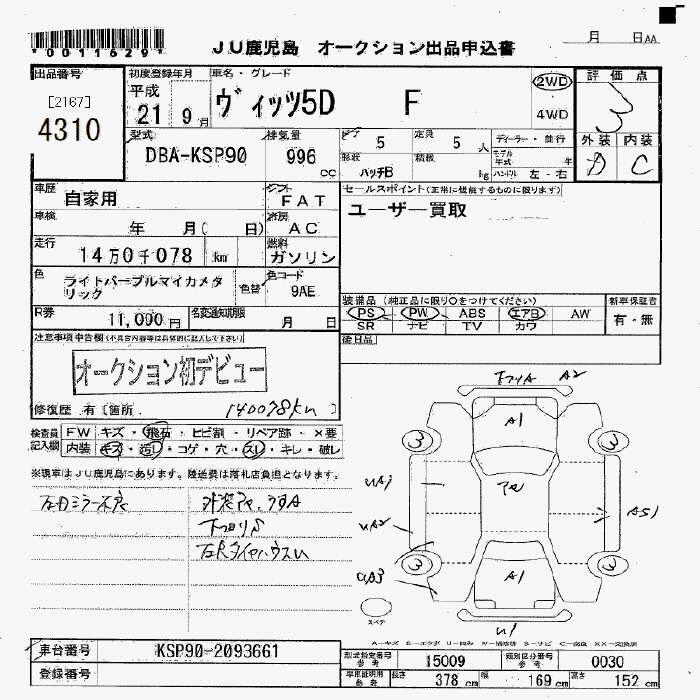 *0011629*
JU鹿児島 オークション出品申込書
月 日AA
出品番号
[2167]
4310
初度登録年月
平成
21 9月
車名・グレード
ヴィッツ5D F
2WD
4WD
評価点
3
外装 内装
D C
型式
DBA-KSP90
排気量
996
cc
ドア 5
定員 5 人
ディーラー・並行
形状 ハッチB
積載 kg
モデル年式 年
ハンドル 左・右
車歴
自家用
シフト
FAT
車検
年 月( 日)
冷房
AC
走行
14万0千078 km
燃料
ガソリン
色
ライトパープルマイカメタリック
色替
色コード
9AE
R券
11,090円
名変通知期限
月 日
セールスポイント(正常に機能するものに限ります)
ユーザー買取
装備品(純正品に限り○をつけてください)
新車保証書
PS PW ABS エアB AW
SR ナビ TV カワ
有・無
後日品
注意事項申告欄(不具合内容等は具体的に記入して下さい)
オークション初デビュー
修復歴 有〔箇所 140078km 〕
検査員記入欄
FW キズ・飛石・ヒビ割・リペア跡・×要
内装 キズ・汚レ・コゲ・穴・スレ・キレ・破レ
※現車はJU鹿児島にあります。陸送費は落札店負担となります。
下マワリA A2
A1
3 3
A51
UA2
3 3
A1
U1
スペア
A-キズ E-エクボ U-凹み W-補修跡 S-サビ C-腐食 XX-交換済
車台番号
KSP90-2093661
登録番号
型式指定番号 参考
15009
類別区分番号 参考
0030
長さ 378 cm
幅 169 cm
高さ 152 cm